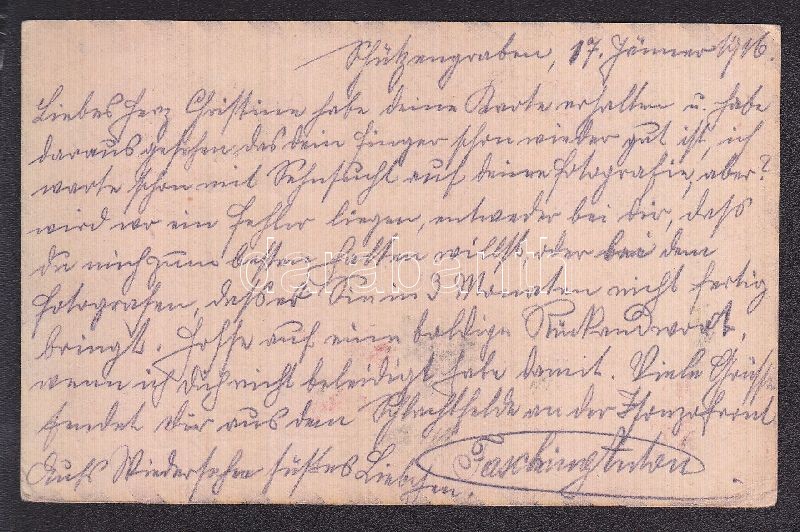 Schützengraben, 17. Jänner 1916.
Liebes Herz Christine habe deine Karte erhalten u. habe
daraus gesehen das dein Finger schon wieder gut ist, ich
warte schon mit Sehnsucht auf deine Fotografie, aber?
wird wo ein Fehler liegen, entweder bei dir, daß
du mich zum besten halten willst, oder bei dem
Fotografen, daß er Sie in 3 Monaten nicht fertig
bringt. Hoffe auf eine baldige Rückandwort,
wenn ich Dich nicht beleidigt habe damit. Viele Grüsse
sendet Dir aus dem Schlachtfelde an der Isonzofront
Auf's Wiedersehn süßes Liebchen.
Pasching Anton
darabanth